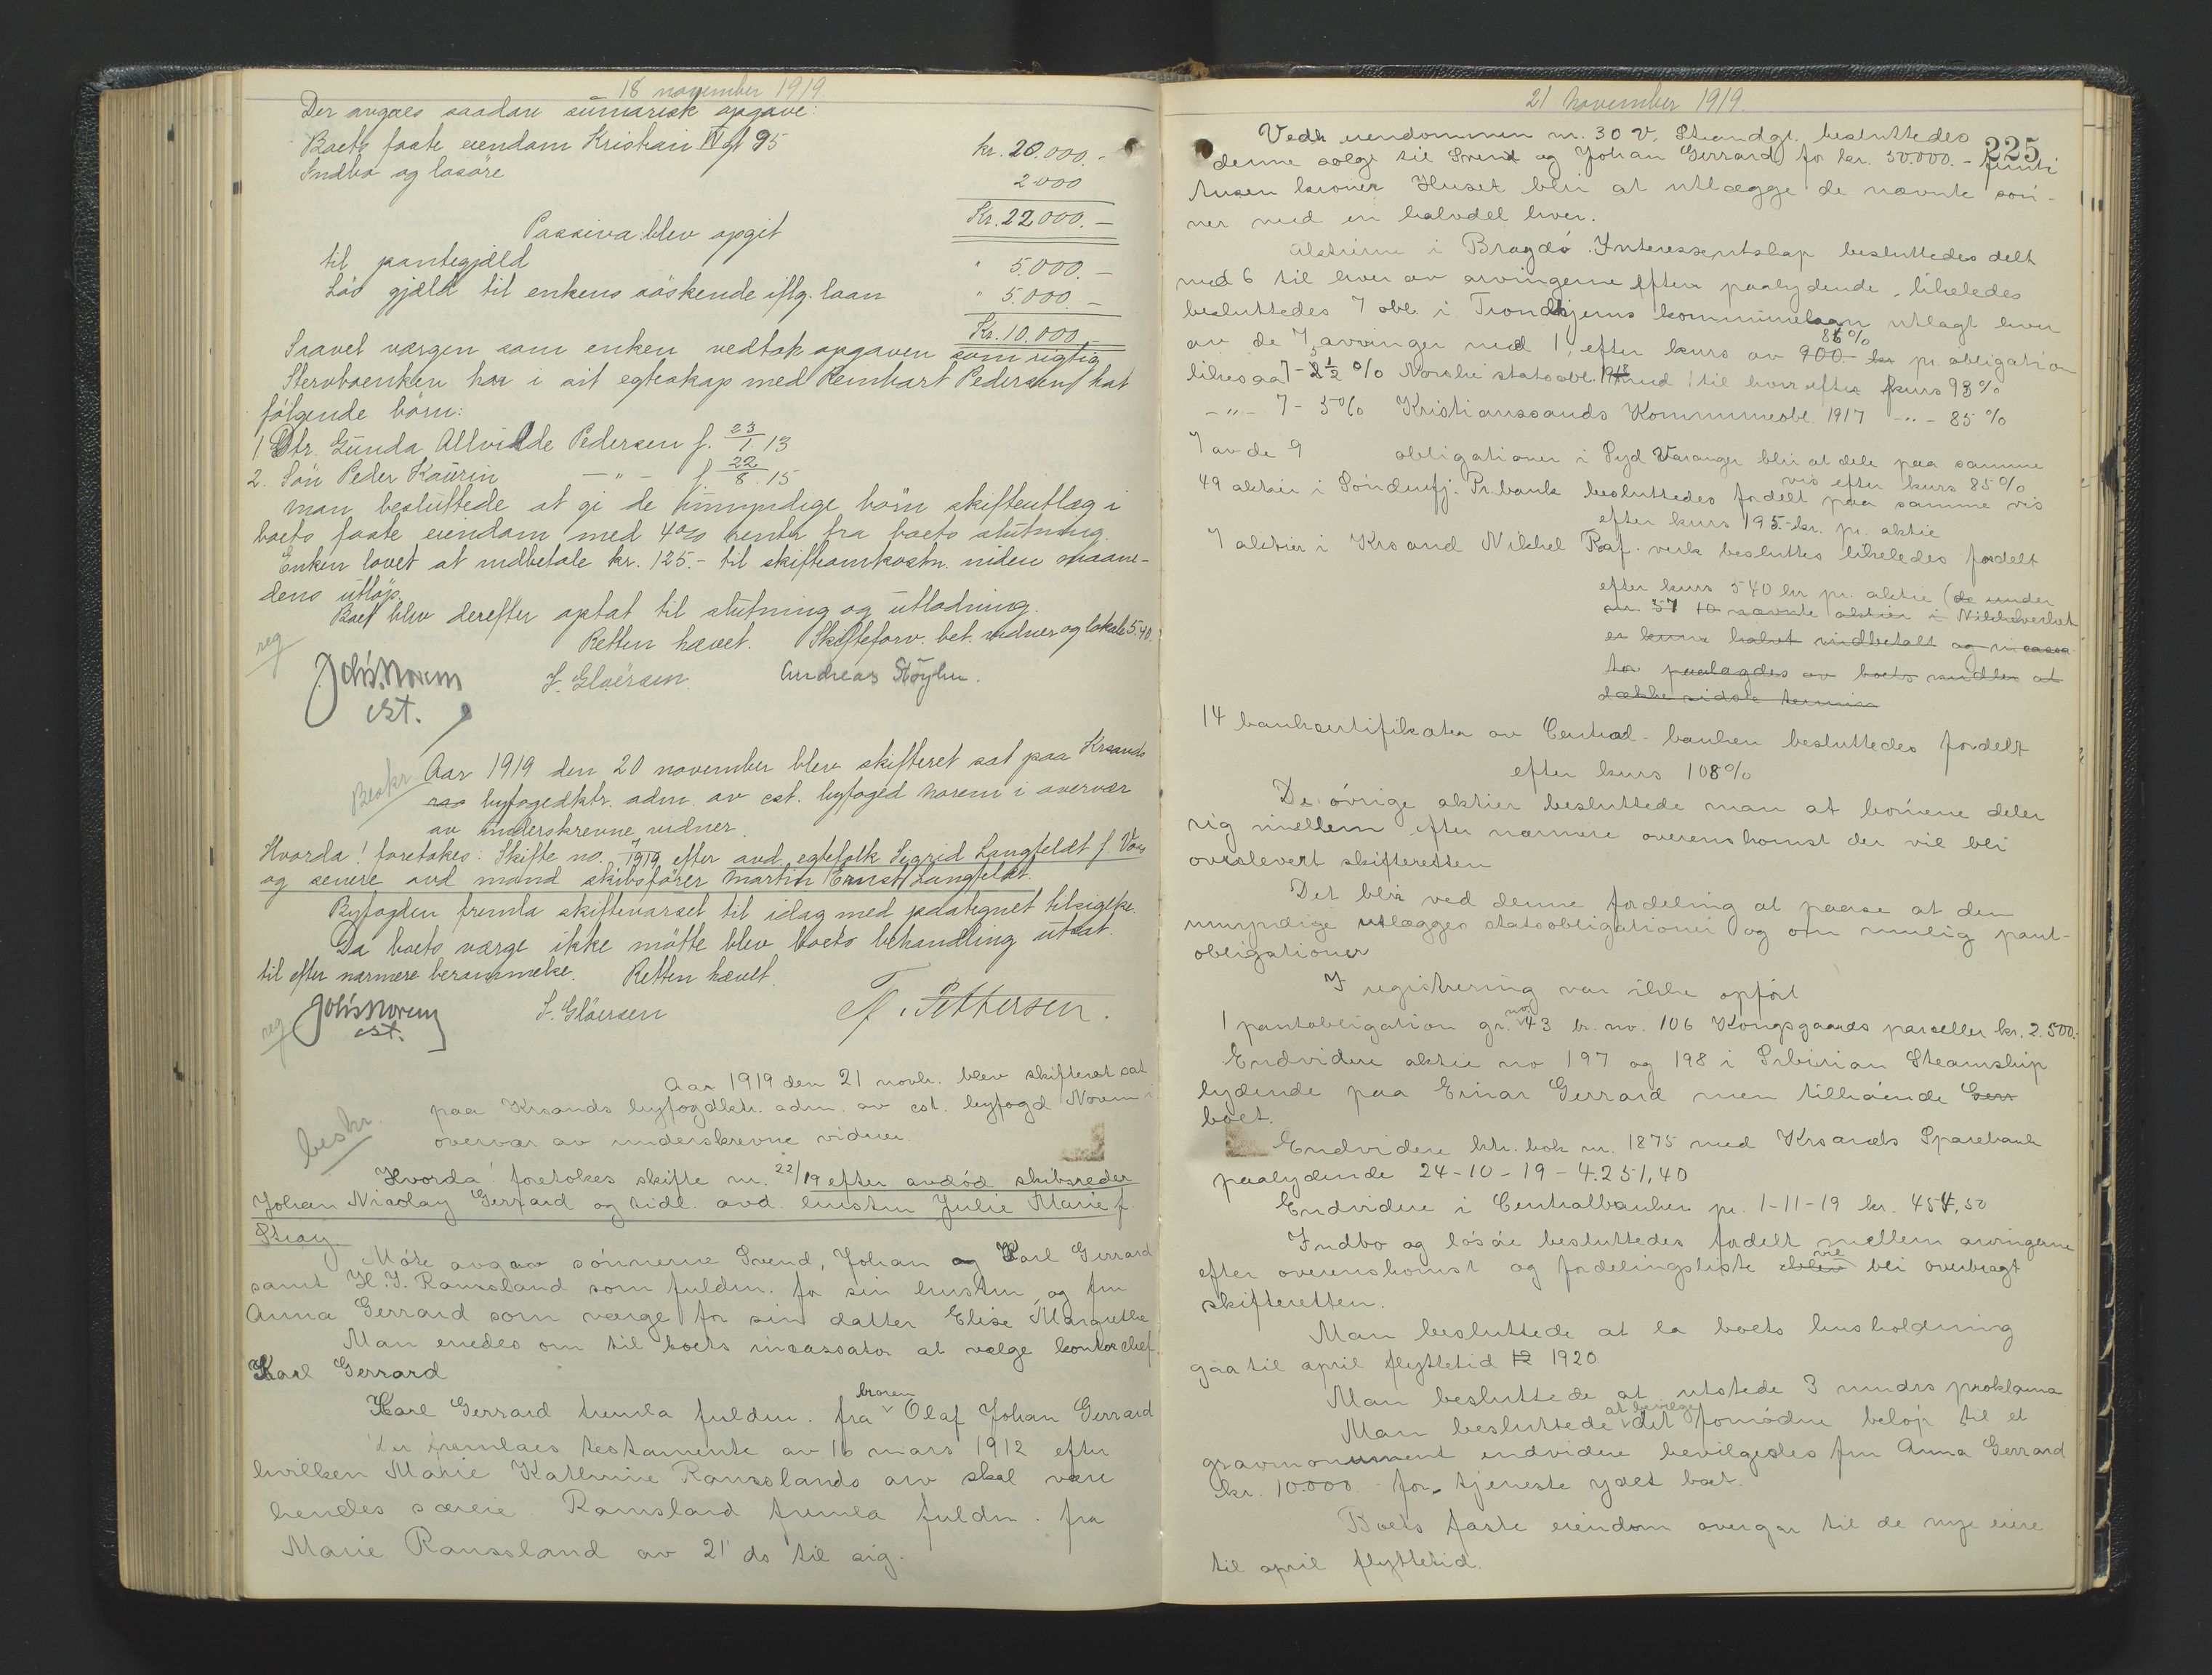 18 november 1919
Der avgaes saadan summarisk opgave:
Boets faste eiendom Kristian IV gt 95 kr. 20.000.-
Indbo og losöre 2000
Kr. 22,000.-
Passiva blev opgit
til pantegjæld " 5.000.-
Lös gjæld til enkens söskende iflg. laan " 5.000.-
Kr. 10.000.-
Saavel værgen som enken vedtok opgaven som rigtig
Stervboenken har i sit egteskap med Reinhart Pedersen hat
følgende börn:
1. Dtr. Gunda Allvilde Pedersen f. 23/1 13
2. Sön Peder Kaurin — " — f. 22/8 15
Man besluttede at gi de umyndige börn skifteutlæg i
boets faste eiendom med 4% renter fra boets slutning.
Enken lovet at indbetale kr. 125.- til skifteomkostn. inden maane-
dens utlöp.
Boet blev derefter optat til slutning og utlodning.
Retten hævet. Skifteforv. bet. vidner og lokale 5.40.
reg
Johs. Norem S. Gloersen Andreas Stöylen.
cst.
Beskr. Aar 1919 den 20 november blev skifteret sat paa Krsands
byfogedktr. adm. av cst. byfoged Norem i overvær
av underskrevne vidner.
Hvorda! foretokes: Skifte no. 7/1919 efter avd. egtefolk Sigrid Langfeldt f. Vos
og senere avd mand skibsfører Martin Ernst Langfeldt.
Byfogden fremla skiftevarsel til idag med paategnet tilsigelse.
Da boets værge ikke mötte blev boets behandling utsat
til efter nærmere berammelse. Retten hævet.
reg Johs Norem S. Glöersen F. Pettersen.
cst.
Aar 1919 den 21 novbr. blev skifteret sat
paa Krsands byfogdktr. adm. av cst. byfogd Norem i
beskr. overvær av underskrevne vidner.
Hvorda! foretokes skifte nr. 22/19 efter avdöd skibsreder
Johan Nicolay Gerrard og tidl. avd. hustru Julie Marie f.
Stray
Möte avgav sönnerne Svend, Johan og Karl Gerrard
samt H. J. Ramsland som fuldm. for sin hustru og fru
Anna Gerrard som værge for sin datter Elise Margrethe
Man enedes om til boets incassator at vælge kontorchef
Karl Gerrard
Karl Gerrard fremla fuldm. fra broren Olaf Johan Gerrard
Der fremlaes testamente av 16 mars 1912 efter
hvilken Marie Kathrine Ramslands arv skal være
hendes særeie. Ramsland fremla fuldm. fra
Marie Ramsland av 21 ds til sig.
21 november 1919.
225
Vedk eiendommen nr. 30 V. Strandgt. besluttedes
denne solgt til Svend og Johan Gerrard for kr. 50.000.- femti
tusen kroner Huset blir at utlægge de nævnte sön-
ner med en halvdel hver.
Aktierne i Bragdö Interessentskap besluttedes delt
med 6 til hver av arvingerne efter paalydende, likeledes
besluttedes 7 obl. i Trondhjems kommunelaan utlagt hver
av de 7 arvinger med 1, efter kurs av 900.- kr 86% pr. obligation
likesaa 7 - 3½ % Norske statsobl. 1918 med 1 til hver efter kurs 93%
- " - 7 - 5% Kristianssands Kommuneobl. 1917 - " - 85 %
7 av de 9 obligationer i Syd Varanger blir at dele paa samme
vis efter kurs 85%
49 aktier i Sönderfj. Pr. bank besluttedes fordelt paa samme vis
efter kurs 195.- kr. pr. aktie
7 aktier i Krsand Nikkel Raf. verk besluttes likeledes fordelt
efter kurs 540 kr pr. aktie (de under
nr. 57 10 nævnte aktier i Nikkelverket
er kun halvt indbetalt og incassa
tor paalagdes av boets midler at
dække sidste termin
14 bankcertifikater av Central-banken besluttedes fordelt
efter kurs 108%
De övrige aktier besluttede man at börnene deler
sig imellem efter nærmere overenskomst der vil bli
overlevert skifteretten
Det blir ved denne fordeling at paase at den
umyndige utlægges statsobligationer og om mulig pant-
obligationer
I registrering var ikke opfört
1 pantobligation gr. no 43 br. nr. 106 Kongsgaards parceller kr. 2.500.-
Endvidere aktie no 197 og 198 i Sibirian Steamship
lydende paa Einar Gerrard men tilhörende Gerr
boet.
Endvidere ktr. bok nr. 1875 med Krsands Sparebank
paalydende 24-10-19 - 4.251,40
Endvidere i Centralbanken pr. 1-11-19 kr. 454,50
Indbo og lösöre besluttedes fordelt mellem arvingene
efter overenskomst og fordelingsliste vil bli overbragt
skifteretten.
Man besluttede at la boets husholdning
gaa til april flyttetid 19 1920.
Man besluttede at utstede 3 mndrs proklama
Man besluttede at bevilge det fornödne belöp til et
gravmonument endvidere bevilgedes fru Anna Gerrard
kr. 10.000 for tjeneste ydet boet.
Boets faste eiendom overgaar til de nye eiere
til april flyttetid.